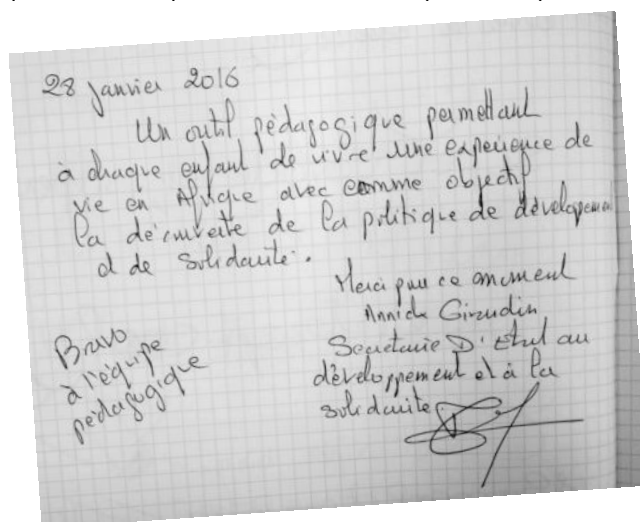 28 janvier 2016
Un outil pédagogique permettant
à chaque enfant de vivre une expérience de
vie en Afrique avec comme objectif
la découverte de la politique de développement
et de Solidarité.
Merci pour ce moment
Annick Girardin
Secrétaire D'Etat au
développement et à la
solidarité
Bravo
à l'équipe
pédagogique